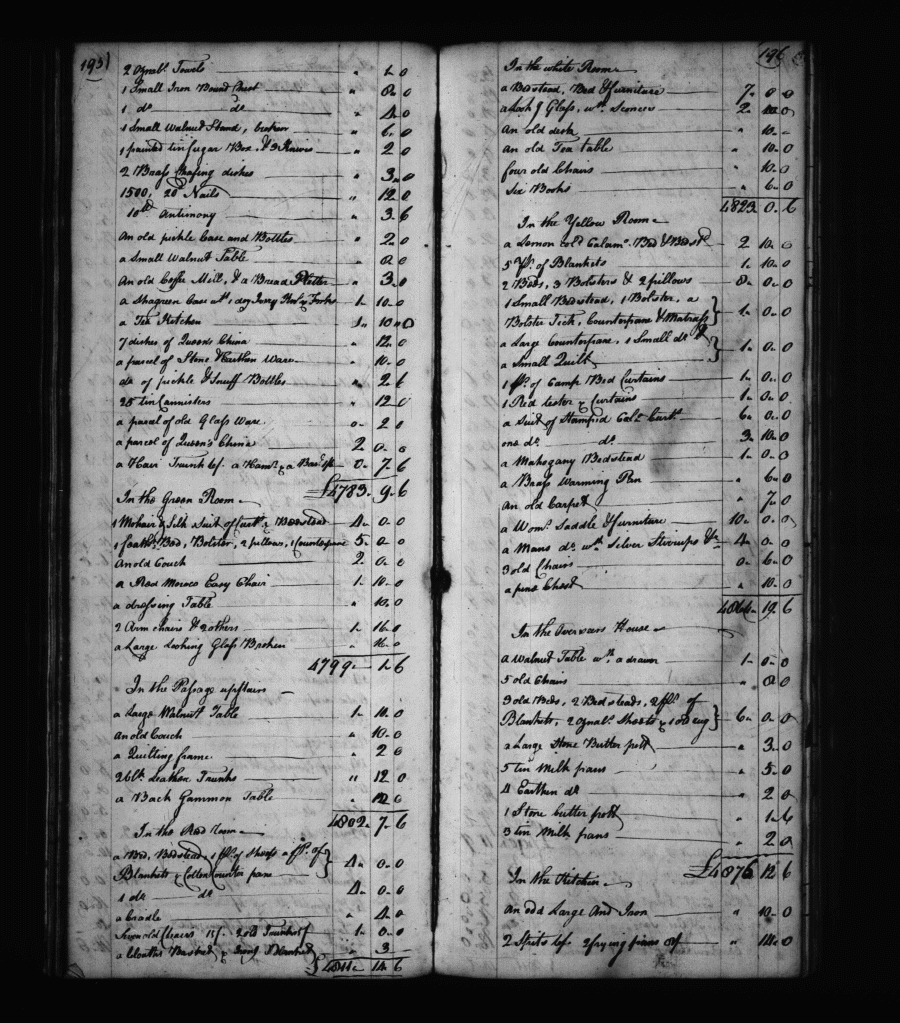 193
2 Oznab. Towels " 1..0
1 Small Iron Bound Chest " 8..0
1 do do " 4..0
1 Small Walnut Stand, broken " 6..0
1 painted tin Sugar Box, & 3 Knives " 2..0
2 Brass Chafing dishes " 3..0
1500, 20d Nails " 12..0
10lb Antimony " 3..6
An old pickle Case and Bottles " 2..0
a Small Walnut Table " 8..0
An old Coffe Mill, & a Bread Platter " 3..0
a Shagreen Case wt. 1 doz Ivory Knivs & Forks 1.. 10..0
a Tea Kitchen 1.. 10..0
7 dishes of Queens China " 12..0
a parcel of Stone & Earthen Ware " 10..0
do of pickle & Snuff Bottles " 2..6
25 tin Cannisters " 12..0
a parcel of old Glass Ware 0.. 2..0
a parcel of Queen's China 2 0..0
a Hair Trunk 0.. 7..6
£4783.. 9..6
In the Green Room
1 Mohair & Silk Suit of Curts. & Bedstead 4.. 0..0
1 feathr. Bed, Bolster, 2 pillows, 1 Counterpane 5.. 0..0
An old Couch 2.. 0..0
a Red Moroco Easy Chair 1.. 10..0
a dressing Table " 10..0
2 Arm chairs & 2 others 1.. 16..0
a Large Looking Glass Broken " 16..0
4799.. 1..6
In the Passage upstairs
a Large Walnut Table 1.. 10..0
An old Couch " 10..0
a Quilting frame " 2..6
2 Leather Trunks " 12..0
a Back Gammon Table " 12..6
4802.. 7..6
In the Red Room
a Bed, Bedstead, 1 pr. of Sheets a pr. of
Blankets & Cotton Counter pane 4.. 0..0
1 do do 4.. 0..0
a Cradle " 4..0
Seven old Chairs 15/. 2 old Trunks 5/ 1.. 0..0
a Cloaths Basket " 3
£4811.. 14..6
196
In the white Room
a Bedstead, Bed & furniture 7.. 0..0
a Look g Glass, wth. Sconces 2..
An old desk " 10..
An old Tea table " 10..0
four old Chairs " 10..0
Six Books " 6..0
4823 0..6
In the Yellow Room
a Lemon cold Calamo. Bed & Bedstd. 2 10..0
5 pr. of Blankets 1.. 10..0
2 Beds, 3 Bolsters & 2 pillows 8.. 0..0
1 Small Bedstead, 1 Bolster, a
Bolster Tick, Counterpane & Matrass 1.. 0..0
a Large Counterpane, 1 Small do &
a Small Quilt 1.. 0..0
1 pr. of Camp Bed Curtains 1.. 0..0
1 Red tester & Curtains 1.. 0..0
a Suit of Stamped Calo. Curts. 6.. 0..0
one do. do. 3.. 10..0
a Mahogany Bedstead 1.. 0..0
a Brass Warming Pan " 6..0
An old Carpet " 7..0
a Woms. Saddle & furniture 10.. 0..0
a Mans do. wth. Silver Stirrups &c 4.. 0..0
3 old Chairs 0.. 6..0
a pine Chest " 10..0
4864.. 19..6
In the Overseers House
a Walnut Table wth. a drawer 1.. 0..0
5 old Chairs " 8..0
3 old Beds, 2 Bedsteads, 2 pr. of
Blankets, 2 Oznab. Sheets & 1 old rug 6.. 0..0
a Large Stone Butter pott " 3..0
5 tin Milk pans " 5..0
4 Earthen do. " 2..0
1 Stone butter pott " 1..6
3 tin Milk pans " 2..0
£4873 12..6
In the Kitchen
An odd Large And Iron " 10..0
2 Spits 6/. 2 frying pans 8/ " 14..0